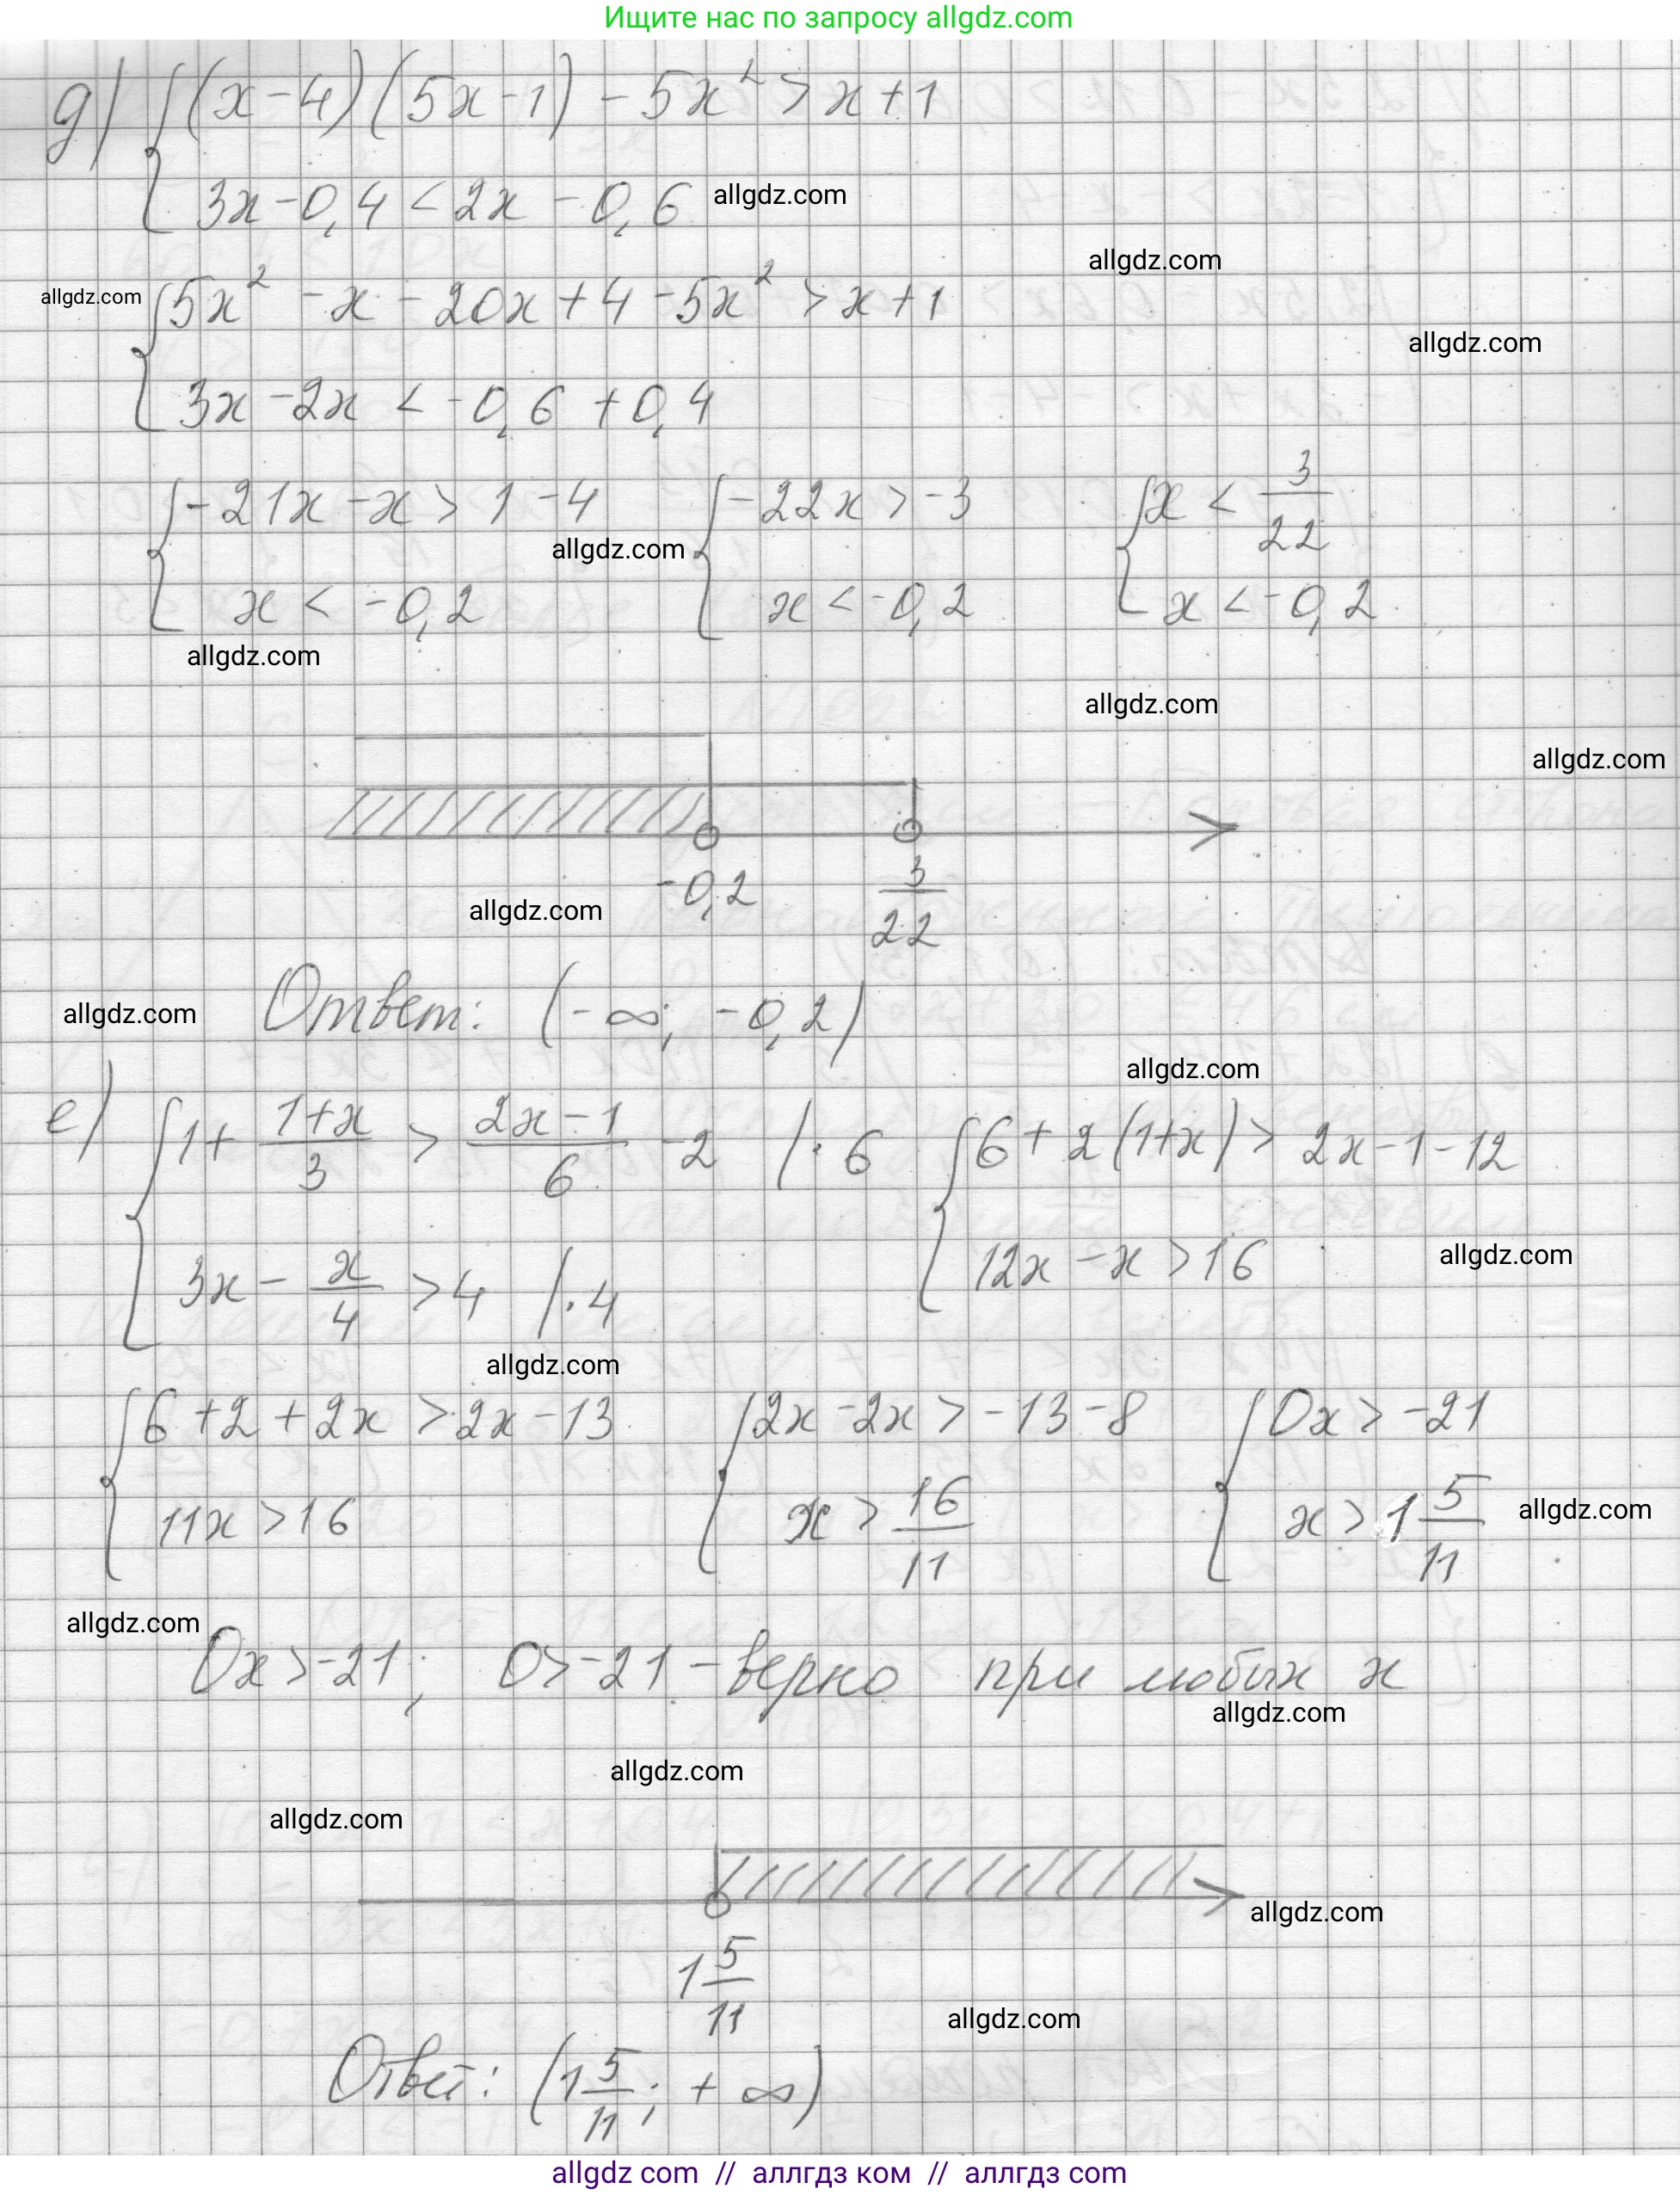 Ищите нас по запросу allgdz.com
д) { (x-4)(5x-1) - 5x² > x+1
3x-0,4 < 2x - 0,6 allgdz.com
allgdz.com
allgdz.com { 5x² - x - 20x + 4 - 5x² > x+1
allgdz.com
3x - 2x < -0,6 + 0,4
{ -21x - x > 1 - 4 { -22x > -3 { x < 3/22
allgdz.com
x < -0,2 x < -0,2 x < -0,2
allgdz.com
allgdz.com
allgdz.com
-0,2 3/22
allgdz.com
allgdz.com Ответ: (-∞; -0,2)
allgdz.com
е) { 1 + (1+x)/3 > (2x-1)/6 - 2 | · 6 { 6 + 2(1+x) > 2x-1-12
3x - x/4 > 4 | · 4 12x - x > 16 allgdz.com
allgdz.com
{ 6+2+2x > 2x-13 { 2x-2x > -13-8 { 0x > -21
11x > 16 x > 16/11 x > 1 5/11 allgdz.com
allgdz.com
0x > -21; 0 > -21 - верно при любых x
allgdz.com
allgdz.com
allgdz.com
allgdz.com
1 5/11
allgdz.com
Ответ: (1 5/11; + ∞)
allgdz com // аллгдз ком // аллгдз com